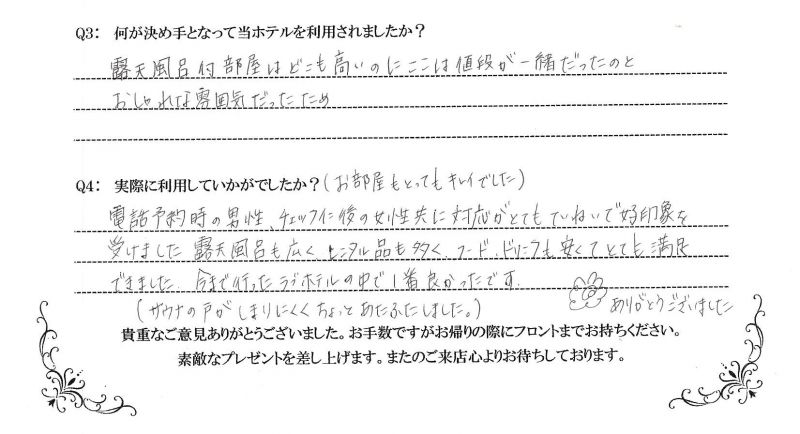 Q3: 何が決め手となって当ホテルを利用されましたか?
露天風呂付部屋はどこも高いのにここは値段が一緒だったのと
おしゃれな雰囲気だったため
Q4: 実際に利用していかがでしたか?(お部屋もとってもキレイでした)
電話予約時の男性、チェックイン後の女性共に対応がとてもていねいで好印象を
受けました 露天風呂も広く、レンタル品も多く、フード、ドリンクも安くてとても満足
できました。今まで行ったラブホテルの中で1番良かったです。
(サウナの戸がしまりにくくちょっとあたふたしました。)
ありがとうございました
貴重なご意見ありがとうございました。お手数ですがお帰りの際にフロントまでお持ちください。
素敵なプレゼントを差し上げます。またのご来店心よりお待ちしております。